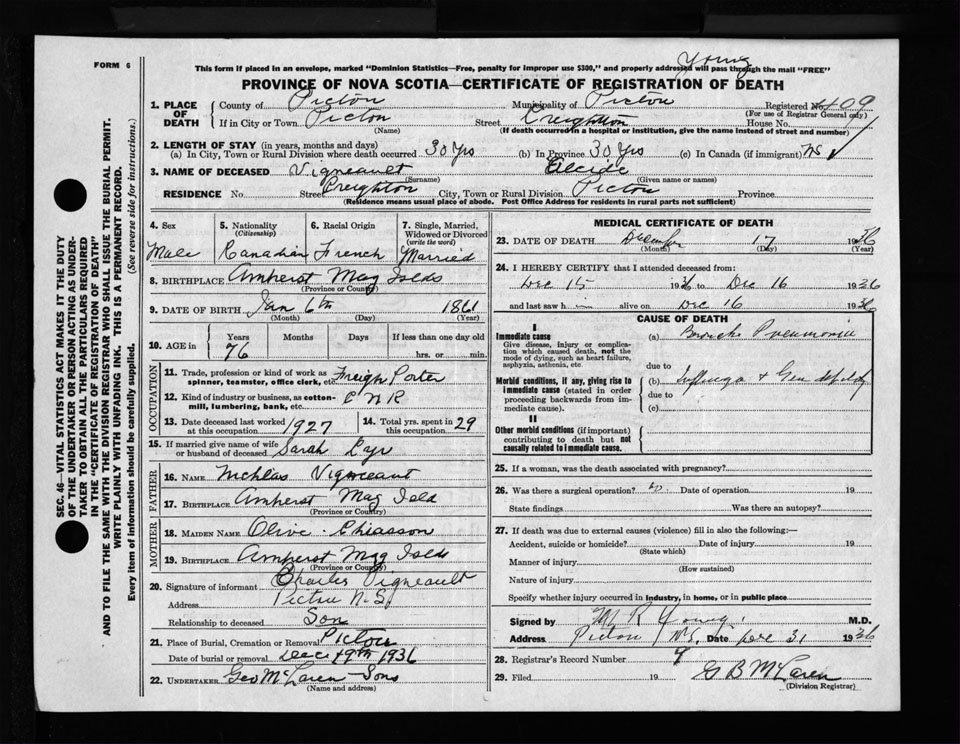 FORM 6
Young
This form if placed in an envelope, marked "Dominion Statistics—Free, penalty for improper use $300," and properly addressed will pass through the mail "FREE"
PROVINCE OF NOVA SCOTIA—CERTIFICATE OF REGISTRATION OF DEATH
1. PLACE OF DEATH County of Pictou Municipality of Pictou Registered No. 409
(For use of Registrar General only)
If in City or Town Pictou Street Creighton House No.
(Name) (If death occurred in a hospital or institution, give the name instead of street and number)
2. LENGTH OF STAY (in years, months and days)
(a) In City, Town or Rural Division where death occurred 30 Yrs (b) In Province 30 Yrs (c) In Canada (if immigrant)
3. NAME OF DECEASED Vigneault Alcide
(Surname) (Given name or names)
RESIDENCE No. Street Creighton City, Town or Rural Division Pictou Province
(Residence means usual place of abode. Post Office Address for residents in rural parts not sufficient)
4. Sex 5. Nationality (Citizenship) 6. Racial Origin 7. Single, Married, Widowed or Divorced (write the word)
Male Canadian French Married
8. BIRTHPLACE Amherst Mag Islds
(Province or County)
9. DATE OF BIRTH Jan 6th 1861
(Month) (Day) (Year)
10. AGE in Years Months Days If less than one day old
76 hrs. or min.
OCCUPATION
11. Trade, profession or kind of work as spinner, teamster, office clerk, etc. Freigh Porter
12. Kind of industry or business, as cotton-mill, lumbering, bank, etc. C N R
13. Date deceased last worked at this occupation 1927 14. Total yrs. spent in this occupation 29
15. If married give name of wife or husband of deceased Sarah
FATHER
16. NAME Nichlas Vigneault
17. BIRTHPLACE Amherst Mag Isld
(Province or Country)
MOTHER
18. MAIDEN NAME Olive Chiasson
19. BIRTHPLACE Amherst Mag Islds
(Province or Country)
20. Signature of informant Charles Vigneault
Address Pictou N.S.
Relationship to deceased Son
21. Place of Burial, Cremation or Removal Pictou
Date of burial or removal Dec 19th 1936
22. UNDERTAKER Geo McLaren Sons
(Name and address)
MEDICAL CERTIFICATE OF DEATH
23. DATE OF DEATH December 17 1936
(Month) (Day) (Year)
24. I HEREBY CERTIFY that I attended deceased from:
Dec 15 1936 to Dec 16 1936
and last saw h im alive on Dec 16 1936
CAUSE OF DEATH
I
Immediate cause
Give disease, injury or complication which caused death, not the mode of dying, such as heart failure, asphyxia, asthenia, etc.
(a) Broncho Pneumonia
due to
Morbid conditions, if any, giving rise to immediate cause (stated in order proceeding backwards from immediate cause).
(b) Influenza & Gen
due to
(c)
II
Other morbid conditions (if important) contributing to death but not causally related to immediate cause.
25. If a woman, was the death associated with pregnancy?
26. Was there a surgical operation? Date of operation 19
State findings Was there an autopsy?
27. If death was due to external causes (violence) fill in also the following:—
Accident, suicide or homicide? Date of injury 19
(State which)
Manner of injury
(How sustained)
Nature of injury
Specify whether injury occurred in industry, in home, or in public place
Signed by M R Young M.D.
Address Pictou N.S. Date Dec 31 1936
28. Registrar's Record Number
29. Filed 19 G B McLaren
(Division Registrar)
SEC. 46—VITAL STATISTICS ACT MAKES IT THE DUTY
OF THE UNDERTAKER OR PERSON ACTING AS UNDER-
TAKER TO OBTAIN ALL THE PARTICULARS REQUIRED
IN THE "CERTIFICATE OF REGISTRATION OF DEATH"
AND TO FILE THE SAME WITH THE DIVISION REGISTRAR WHO SHALL ISSUE THE BURIAL PERMIT.
WRITE PLAINLY WITH UNFADING INK. THIS IS A PERMANENT RECORD.
Every item of information should be carefully supplied. (See reverse side for instructions.)